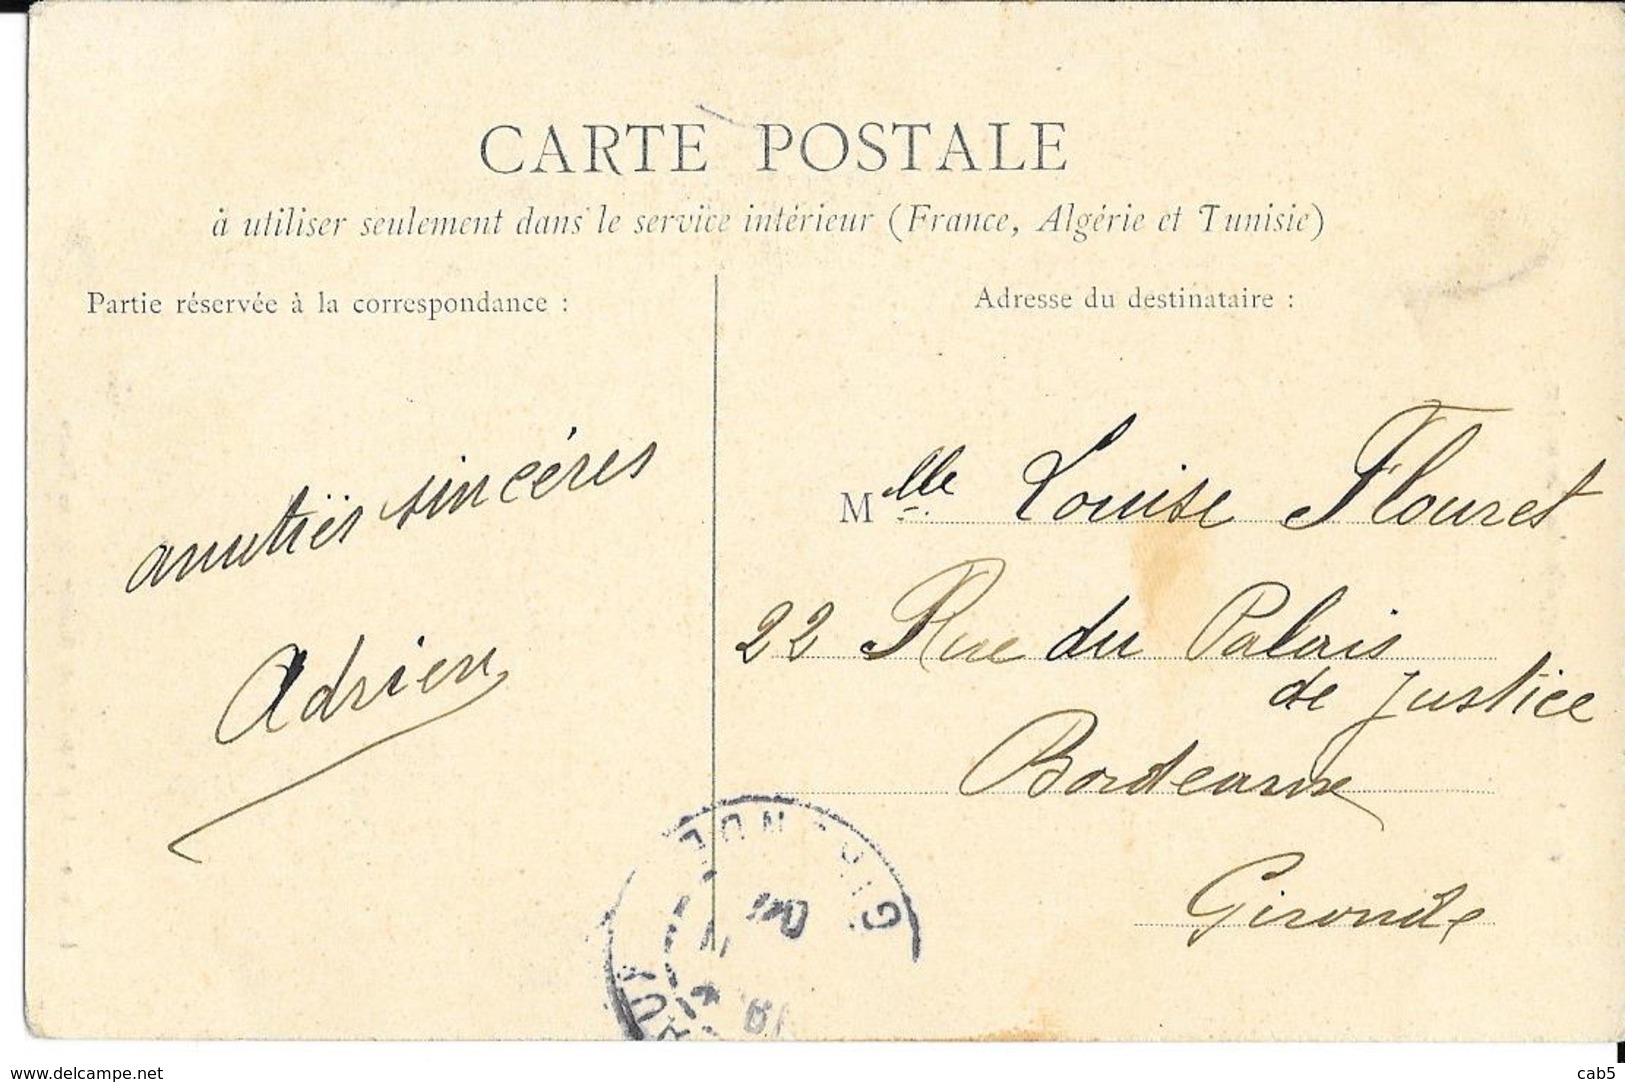 CARTE POSTALE
à utiliser seulement dans le service intérieur (France, Algérie et Tunisie)
Partie réservée à la correspondance :
amitiés sincéres
Adrien
Adresse du destinataire :
Mlle Louise Flouret
22 Rue du Palais
de Justice
Bordeaux
Gironde
www.delcampe.net
cab5